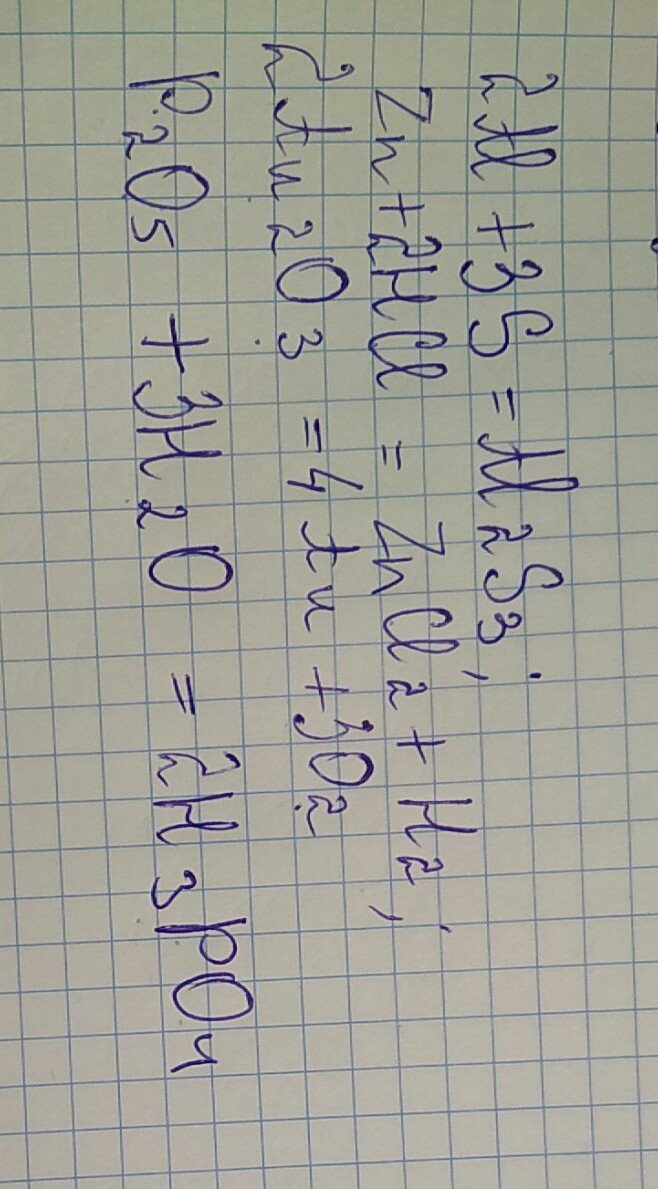 2Al + 3S = Al2S3;
Zn + 2HCl = ZnCl2 + H2;
2Au2O3 = 4Au + 3O2
P2O5 + 3H2O = 2H3PO4